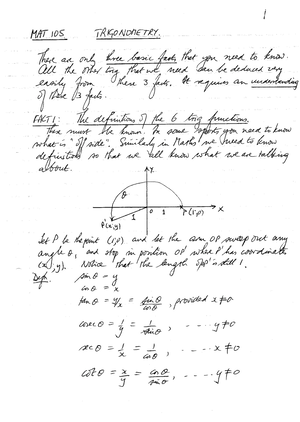 1
MAT 105 TRIGONOMETRY.
There are only three basic facts that you need to know.
All the other trig that we need can be deduced very
easily from these 3 facts. It requires an understanding
of these 3 facts.
FACT 1: The definitions of the 6 trig functions.
These must be known. In some sports you need to know
what is "off side". Similarly in Maths we need to know
definitions so that we all know what we are talking
about.
y
θ
P'(x,y) 1 0 1 P(1,0) x
Let P be the point (1,0) and let the arm OP sweep out any
angle θ, and stop in position OP' where P' has coordinates
(x,y). Notice that the length OP' is still 1.
Defn. sin θ = y
cos θ = x
tan θ = y/x = sin θ / cos θ, provided x ≠ 0
cosec θ = 1/y = 1/sin θ, ---- y ≠ 0
sec θ = 1/x = 1/cos θ, ---- x ≠ 0
cot θ = x/y = cos θ / sin θ, ---- y ≠ 0